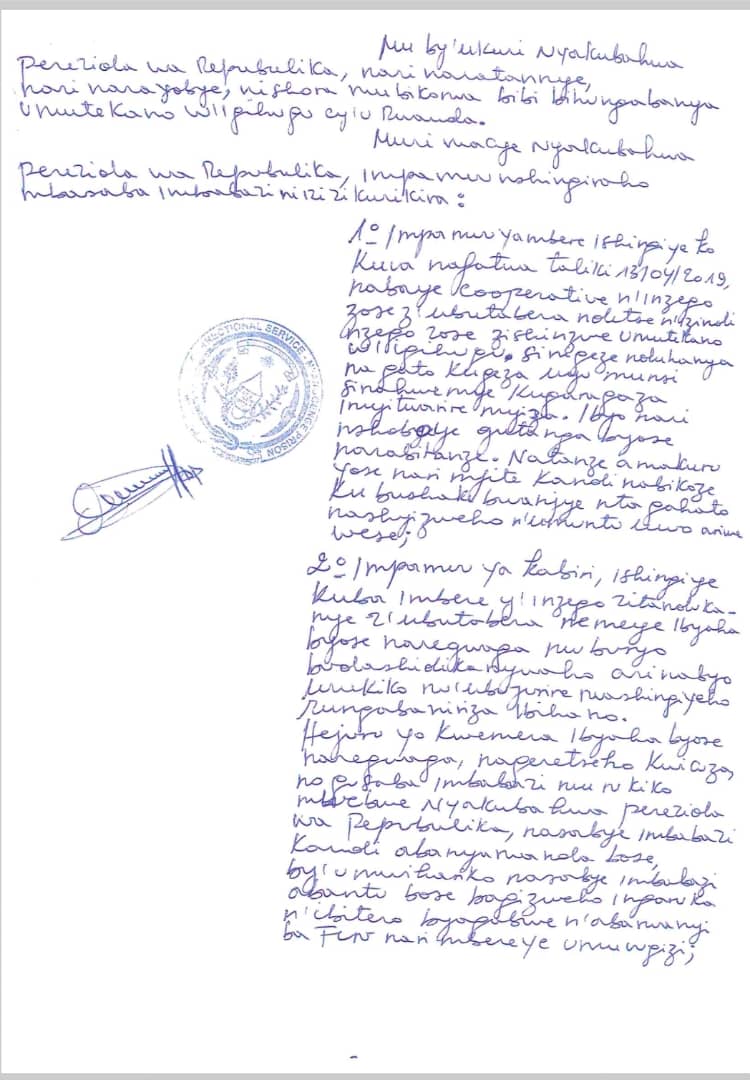 Mu by'ukuri Nyakubahwa
Perezida wa Repubulika, nari naratannye,
nari narayobye, nishora mu bikorwa bibi bihungabanya
umutekano w'igihugu cy'u Rwanda.
Muri macye Nyakubahwa
Perezida wa Repubulika, impamvu nshingiraho
mbasaba imbabazi ni izi zikurikira:
1º/ Impamvu ya mbere ishingiye ko
kuva nafatwa taliki 13/04/2019,
nabaye cooperative n'inzego
zose z'ubutabera ndetse n'izindi
nzego zose zishinzwe umutekano
w'igihugu. Sinigeze nduhanya
na gato kugeza uyu munsi
sinahwemye kugaragaza
imyitwarire myiza. Ibyo nari
nshoboye gutanga byose
narabitanze. Natanze amakuru
yose nari mfite kandi nabikoze
ku bushake bwanjye nta gahato
nashyizweho n'umuntu uwo ariwe
wese;
2º/ Impamvu ya kabiri, ishingiye
kuba imbere y'inzego zitanduka-
nye z'ubutabera nemeye ibyaha
byose naregwaga mu buryo
budashidikanywaho ari nabyo
urukiko rw'ubujurire rwashingiyeho
rungabaniriza ibihano.
Hejuru yo kwemera ibyaha byose
naregwaga, nageretseho kwicuza
no gusaba imbabazi mu rukiko
mbwebwe Nyakubahwa Perezida
wa Repubulika, nasabye imbabazi
kandi abanyarwanda bose,
by'umwihariko nasabye imbabazi
abantu bose bagizweho ingaruka
n'ibitero byagabwe n'abarwanyi
ba FLN nari mbereye umuvugizi;
CORRECTIONAL SERVICE
PRISON